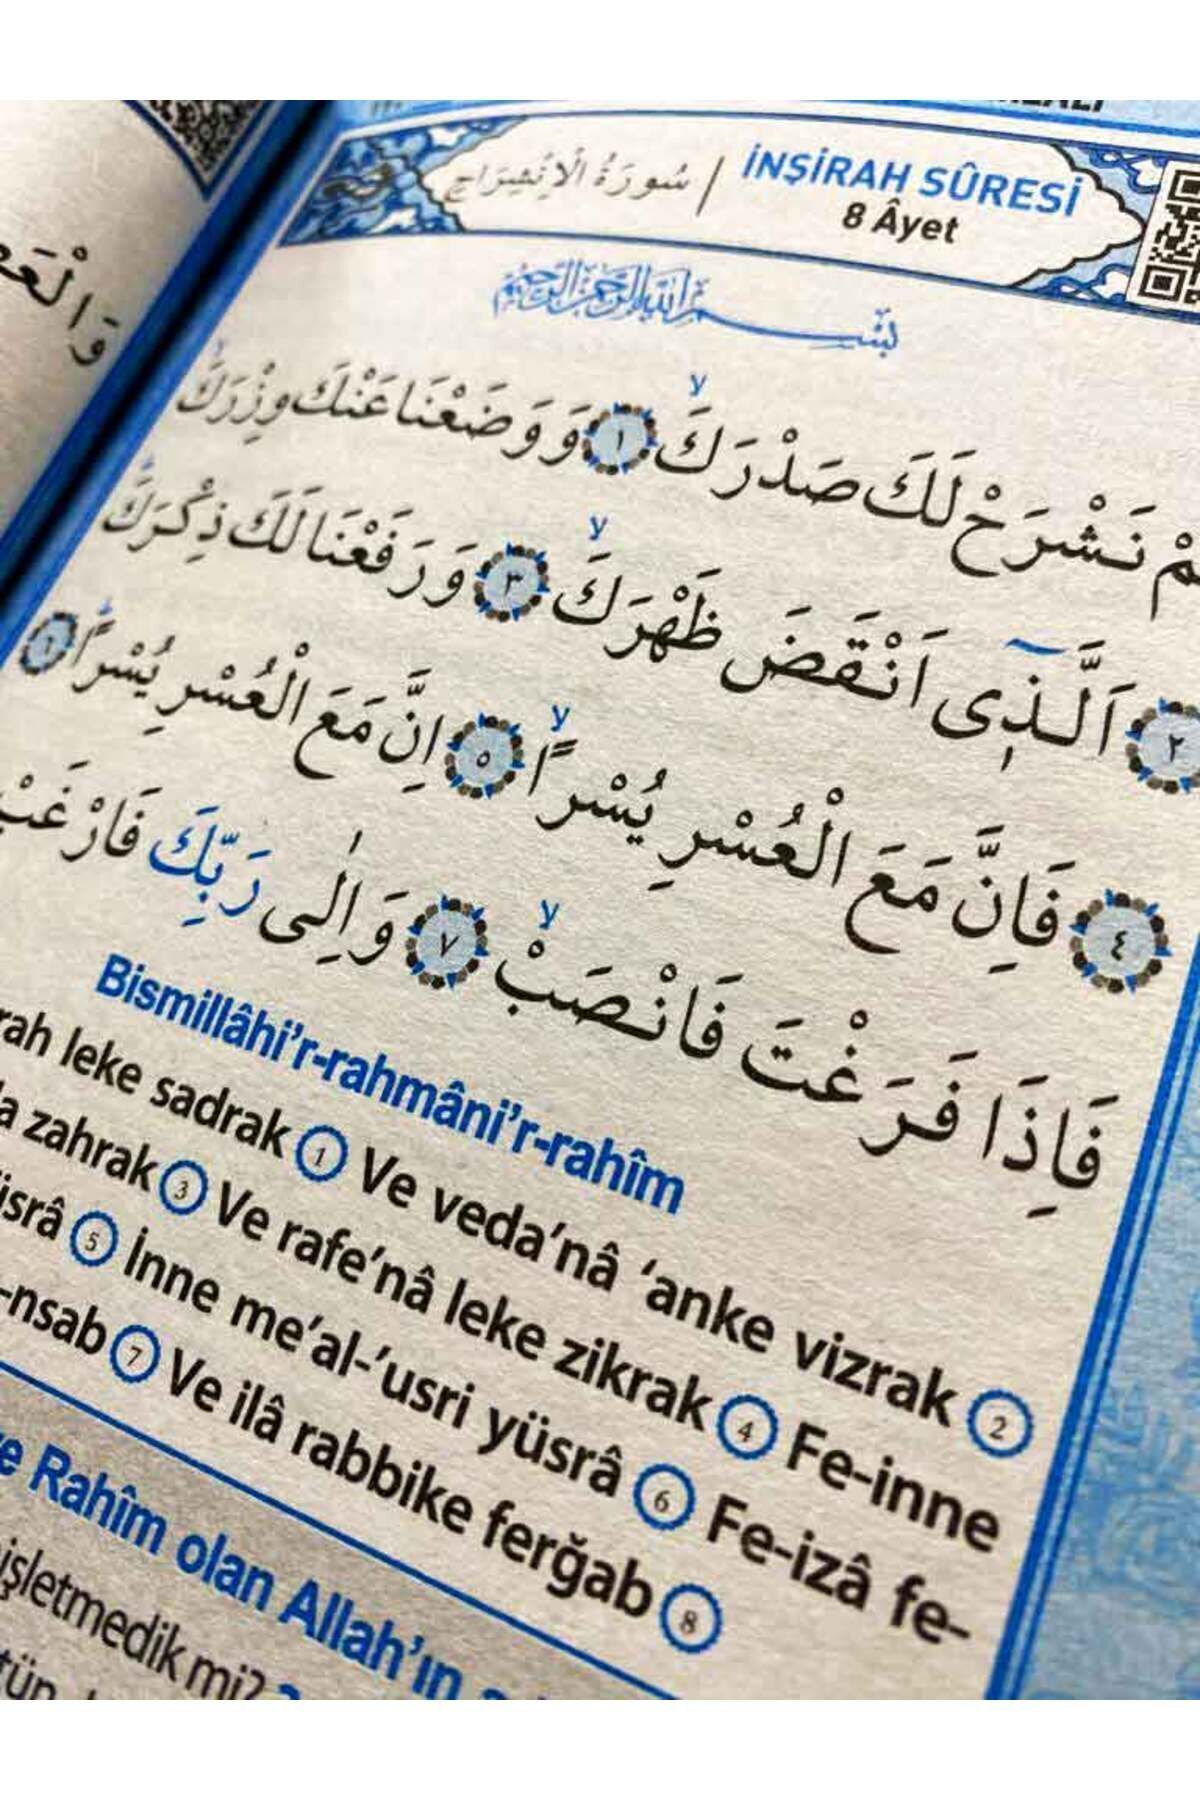 سُورَةُ الْاِنْشِرَاحِ / İNŞİRAH SÛRESİ
8 Âyet
بِسْمِ اللهِ الرَّحْمٰنِ الرَّحِيمِ
نَشْرَحْ لَكَ صَدْرَكَۙ ١ وَوَضَعْنَا عَنْكَ وِزْرَكَۙ
٢ اَلَّـذ۪ٓى اَنْقَضَ ظَهْرَكَۙ ٣ وَرَفَعْنَا لَكَ ذِكْرَكَۜ
٤ فَاِنَّ مَعَ الْعُسْرِ يُسْراًۙ ٥ اِنَّ مَعَ الْعُسْرِ يُسْراًۜ ٦
فَاِذَا فَرَغْتَ فَانْصَبْۙ ٧ وَاِلٰى رَبِّكَ فَارْغَبْ
Bismillâhi’r-rahmâni’r-rahîm
leke sadrak 1 Ve veda’nâ ‘anke vizrak 2
zahrak 3 Ve rafe’nâ leke zikrak 4 Fe-inne
5 İnne me’al-’usri yüsrâ 6 Fe-izâ fe-
-nsab 7 Ve ilâ rabbike ferğab 8
Rahîm olan Allah’ın
mi?